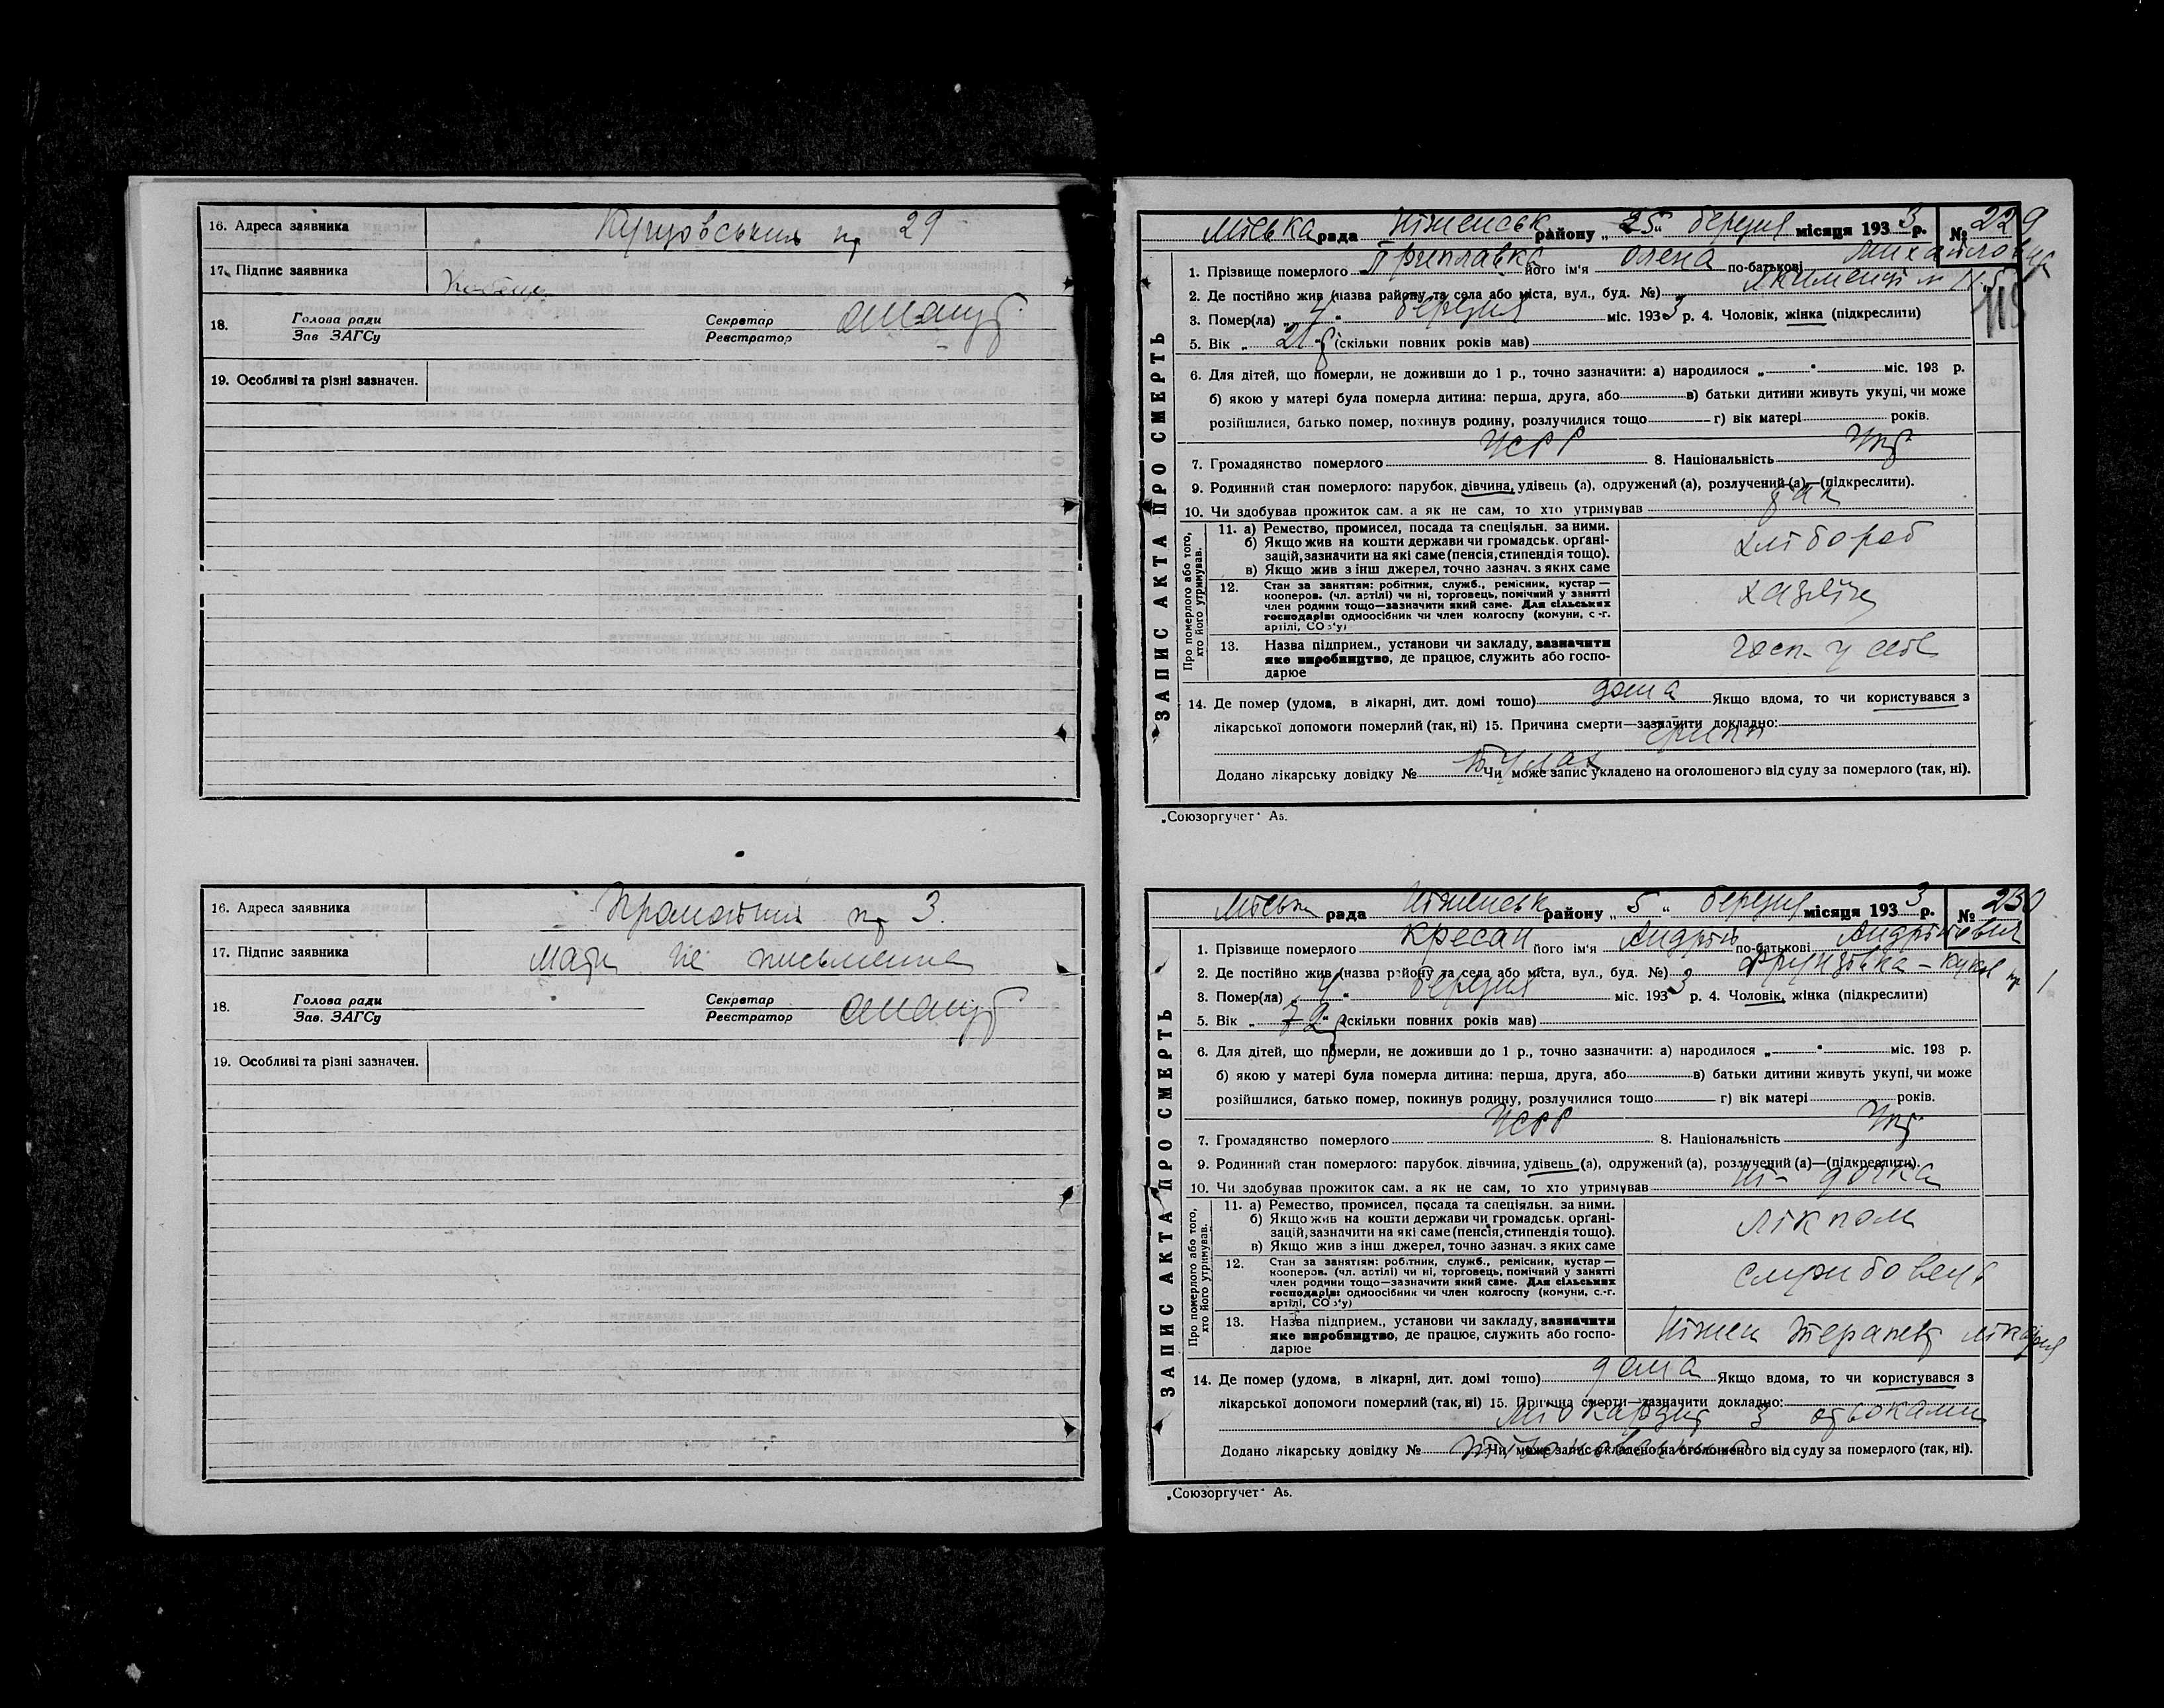 16. Адреса заявника Кунцовський пр 29
17. Підпис заявника
18. Голова ради Секретар
Зав ЗАГСу Реєстратор
19. Особливі та різні зазначен.
16. Адреса заявника 3.
17. Підпис заявника мати не письменна
18. Голова ради Секретар
Зав. ЗАГСу Реєстратор
19. Особливі та різні зазначен.
ЗАПИС АКТА ПРО СМЕРТЬ
Міська рада Ніженськ району „ 25 “ березня місяця 1933 р. № 229
1. Прізвище померлого Приплавка його ім'я Олена по-батькові Михайловна
2. Де постійно жив (назва району та села або міста, вул., буд. №)
115
3. Помер(ла) „ 4 “ березня міс. 1933 р. 4. Чоловік, жінка (підкреслити)
5. Вік „ 21 р “ (скільки повних років мав)
6. Для дітей, що померли, не доживши до 1 р., точно зазначити: а) народилося „ “ міс. 193 р.
б) якою у матері була померла дитина: перша, друга, або в) батьки дитини живуть укупі, чи може
розійшлися, батько помер, покинув родину, розлучилися тощо г) вік матері років.
7. Громадянство померлого УСРР 8. Національність Укр
9. Родинний стан померлого: парубок, дівчина, удівець (а), одружений (а), розлучений (а)—(підкреслити).
10. Чи здобував прожиток сам. а як не сам, то хто утримував так
Про померлого або того, хто його утримував.
11. а) Ремество, промисел, посада та спеціяльн. за ними.
б) Якщо жив на кошти держави чи громадськ. орґані-
зацій, зазначити на які саме (пенсія, стипендія тощо).
в) Якщо жив з інш джерел, точно зазнач. з яких саме
хлібороб
12. Стан за заняттям: робітник, служб., ремісник, кустар —
кооперов. (чл. артілі) чи ні, торговець, помічний у занятті
член родини тощо—зазначити який саме. Для сільських
господарів: одноосібник чи член колгоспу (комуни, с-г.
артілі, СОЗ'у)
13. Назва підприєм., установи чи закладу, зазначити
яке виробництво, де працює, служить або госпо-
дарює
госп. у себе
14. Де помер (удома, в лікарні, дит. домі тощо) дома Якщо вдома, то чи користувався з
лікарської допомоги померлий (так, ні) 15. Причина смерти—зазначити докладно:
грипп
Додано лікарську довідку № Чи може запис укладено на оголошеного від суду за померлого (так, ні).
„Союзоргучет“ А5.
ЗАПИС АКТА ПРО СМЕРТЬ
Міська рада Ніженськ району „ 5 “ березня місяця 1933 р. № 230
1. Прізвище померлого Кресан його ім'я Андрій по-батькові Андрійович
2. Де постійно жив (назва району та села або міста, вул., буд. №) Фрунзовка – 1
3. Помер(ла) „ 4 “ березня міс. 1933 р. 4. Чоловік, жінка (підкреслити)
5. Вік „ 72 р “ (скільки повних років мав)
6. Для дітей, що померли, не доживши до 1 р., точно зазначити: а) народилося „ “ міс. 193 р.
б) якою у матері була померла дитина: перша, друга, або в) батьки дитини живуть укупі, чи може
розійшлися, батько помер, покинув родину, розлучилися тощо г) вік матері років.
7. Громадянство померлого УСРР 8. Національність Укр
9. Родинний стан померлого: парубок. дівчина, удівець (а), одружений (а), розлучений (а)—(підкреслити).
10. Чи здобував прожиток сам. а як не сам, то хто утримував ні – дочка
Про померлого або того, хто його утримував.
11. а) Ремество, промисел, посада та спеціяльн. за ними.
б) Якщо жив на кошти держави чи громадськ. орґані-
зацій, зазначити на які саме (пенсія, стипендія тощо).
в) Якщо жив з інш джерел, точно зазнач. з яких саме
лікпом
12. Стан за заняттям: робітник, служб., ремісник, кустар —
кооперов. (чл. артілі) чи ні, торговець, помічний у занятті
член родини тощо—зазначити який саме. Для сільських
господарів: одноосібник чи член колгоспу (комуни, с.-г.
артілі, СОЗ'у)
службовець
13. Назва підприєм., установи чи закладу, зазначити
яке виробництво, де працює, служить або госпо-
дарює
Ніжен терапевт лікарня
14. Де помер (удома, в лікарні, дит. домі тощо) дома Якщо вдома, то чи користувався з
лікарської допомоги померлий (так, ні) 15. Причина смерти—зазначити докладно:
Міокардит з отьоками
Додано лікарську довідку № Чи може запис укладено на оголошеного від суду за померлого (так, ні).
„Союзоргучет“ А5.